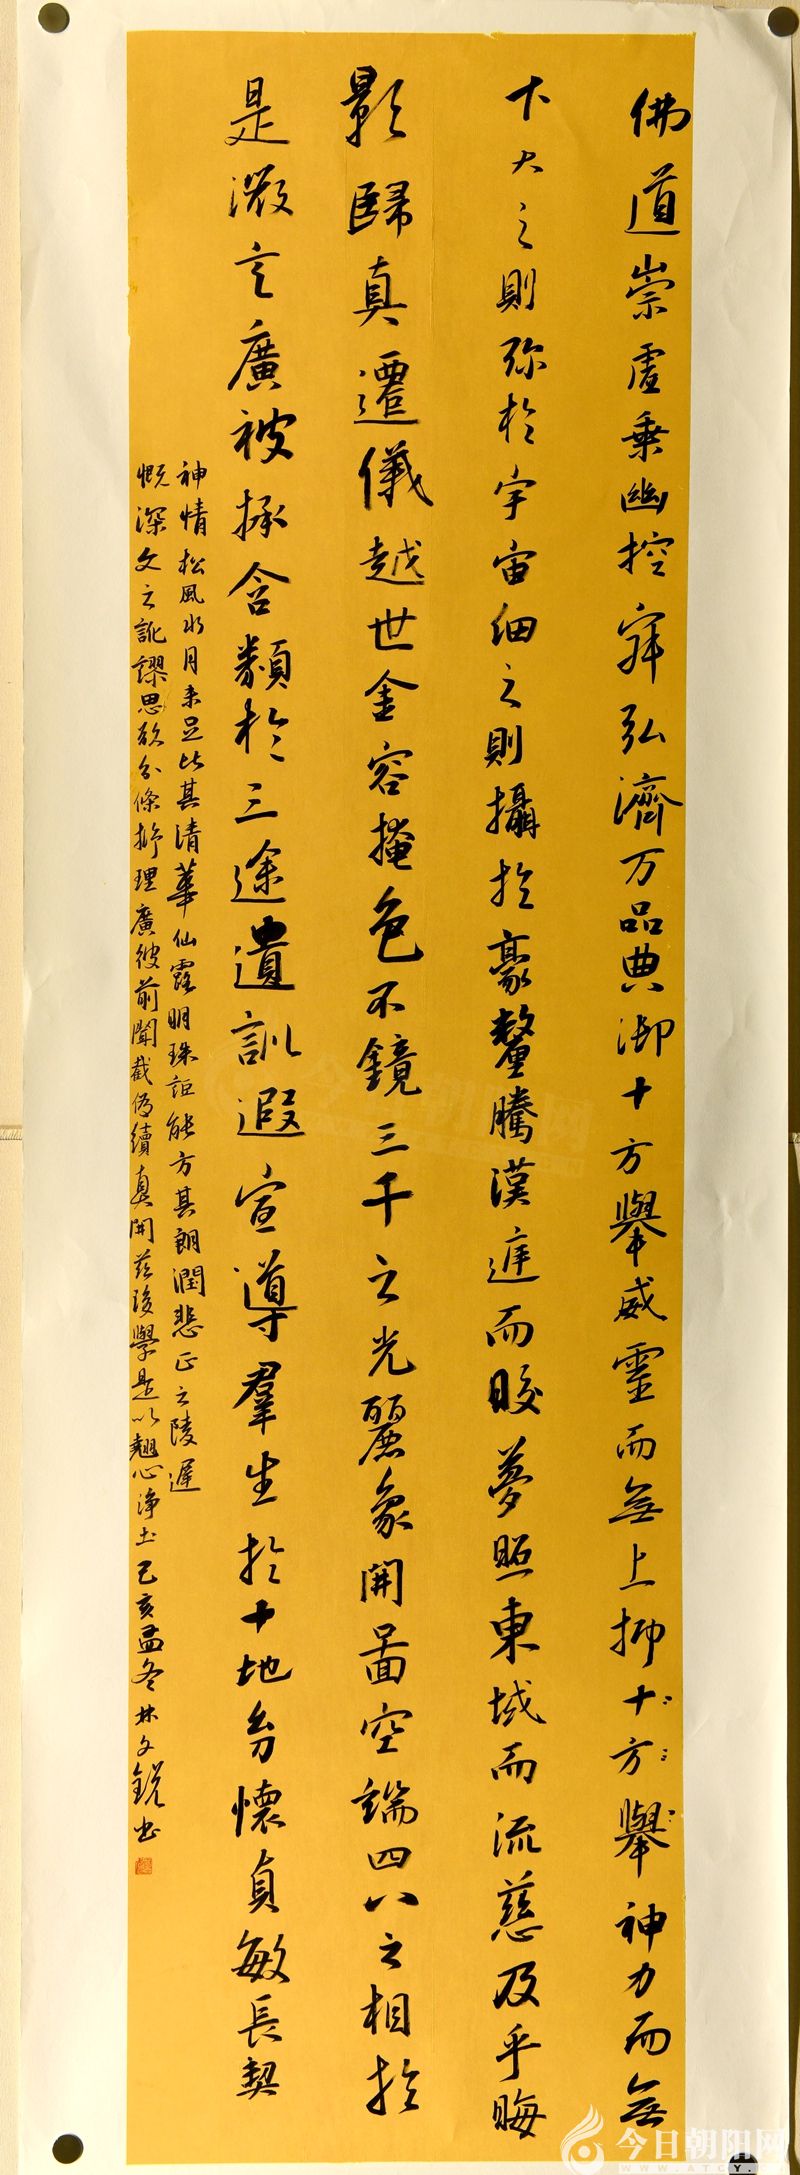 佛道崇虛乗幽控寂弘濟万品典御十方舉威靈而無上抑十方舉神力而無
下大之則弥於宇宙細之則攝於豪釐騰漢庭而皎夢照東域而流慈及乎晦
影歸真遷儀越世金容掩色不鏡三千之光麗象開圖空端四八之相於
是微言廣被拯含類於三途遺訓遐宣導羣生於十地 懷貞敏長契
神情松風水月未足比其清華仙露明珠詎能方其朗潤悲正之陵遲
慨深文之訛謬思欲分條抒理廣彼前聞截偽續真開茲後學是以翹心淨土己亥孟冬林文銳书
今日朝阳网
今日朝阳网